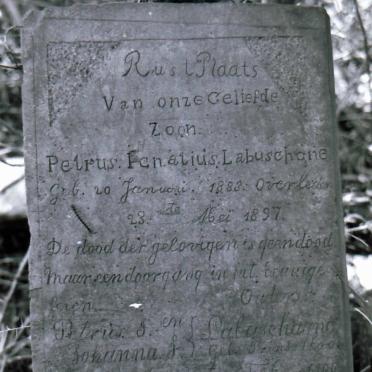 Rust Plaats
Van onze Geliefde
Zoon.
Petrus. Ignatius. Labuschgne
Geb. 20 Januari. 1888. Overleden
23. ste Mei 1897.
De dood der gelovigen is geen dood
Maar een doorgang in het eeuwige
leven Ouders
Petrus. J. en Labuschagne
Johanna. J. Geb.